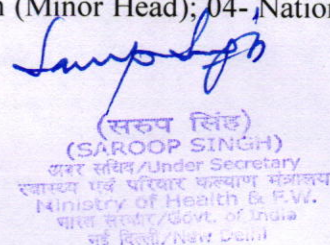 (Minor Head); 04- Nation
(सरुप सिंह)
(SAROOP SINGH)
अवर सचिव/Under Secretary
स्वास्थ्य एवं परिवार कल्याण मंत्रालय
Ministry of Health & F.W.
भारत सरकार/Govt. of India
नई दिल्ली/New Delhi